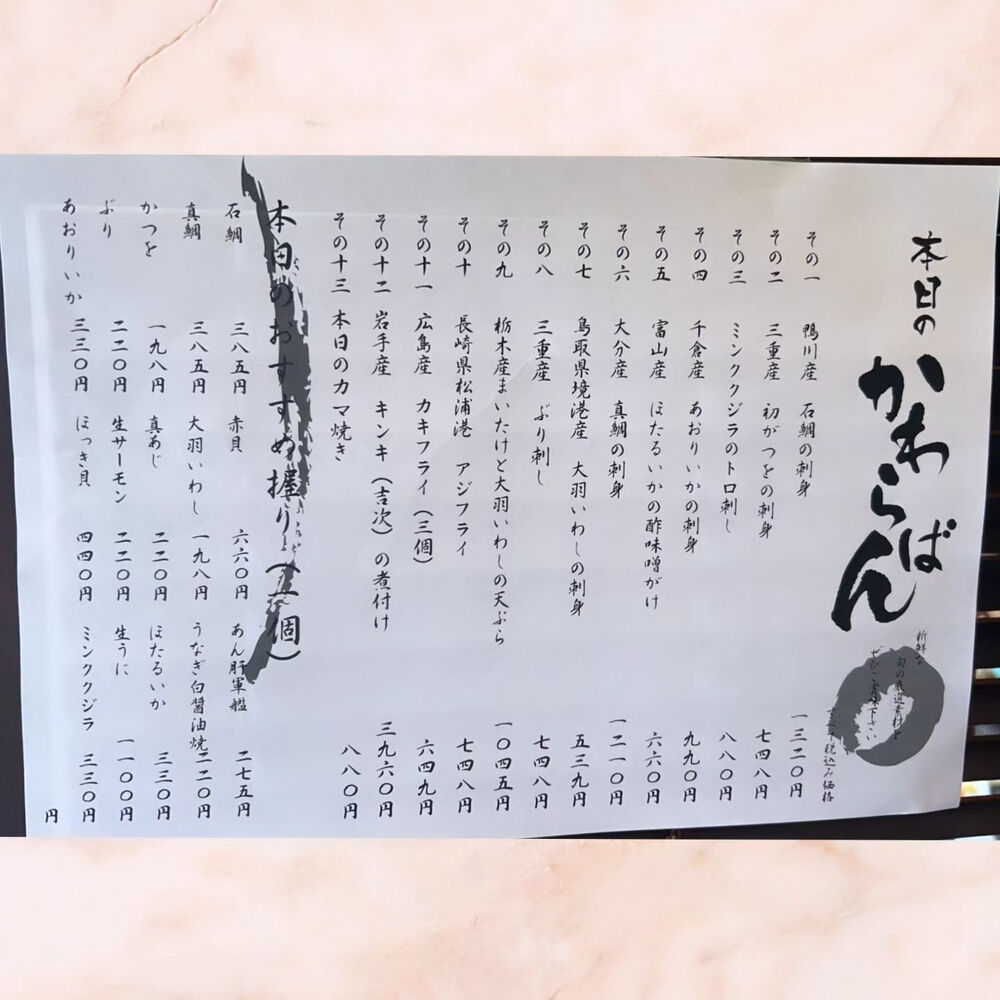 本日の
かわらばん
新鮮な
旬の厳選素材を
ぜひご賞味下さい
全て税込み価格
その一 鴨川産 石鯛の刺身 一三二〇円
その二 三重産 初がつをの刺身 七四八円
その三 ミンククジラのトロ刺し 八八〇円
その四 千倉産 あおりいかの刺身 九九〇円
その五 富山産 ほたるいかの酢味噌がけ 六六〇円
その六 大分産 真鯛の刺身 一二一〇円
その七 鳥取県境港産 大羽いわしの刺身 五三九円
その八 三重産 ぶり刺し 七四八円
その九 栃木産まいたけと大羽いわしの天ぷら 一〇四五円
その十 長崎県松浦港 アジフライ 七四八円
その十一 広島産 カキフライ(三個) 六四九円
その十二 岩手産 キンキ(吉次)の煮付け 三九六〇円
その十三 本日のカマ焼き 八八〇円
本日のおすすめ握り(一個)
石鯛 三八五円 赤貝 六六〇円 あん肝軍艦 二七五円
真鯛 三八五円 大羽いわし 一九八円 うなぎ白醤油焼 二二〇円
かつを 一九八円 真あじ 二二〇円 ほたるいか 三三〇円
ぶり 二二〇円 生サーモン 二二〇円 生うに 一一〇〇円
あおりいか 三三〇円 ほっき貝 四四〇円 ミンククジラ 三三〇円
円